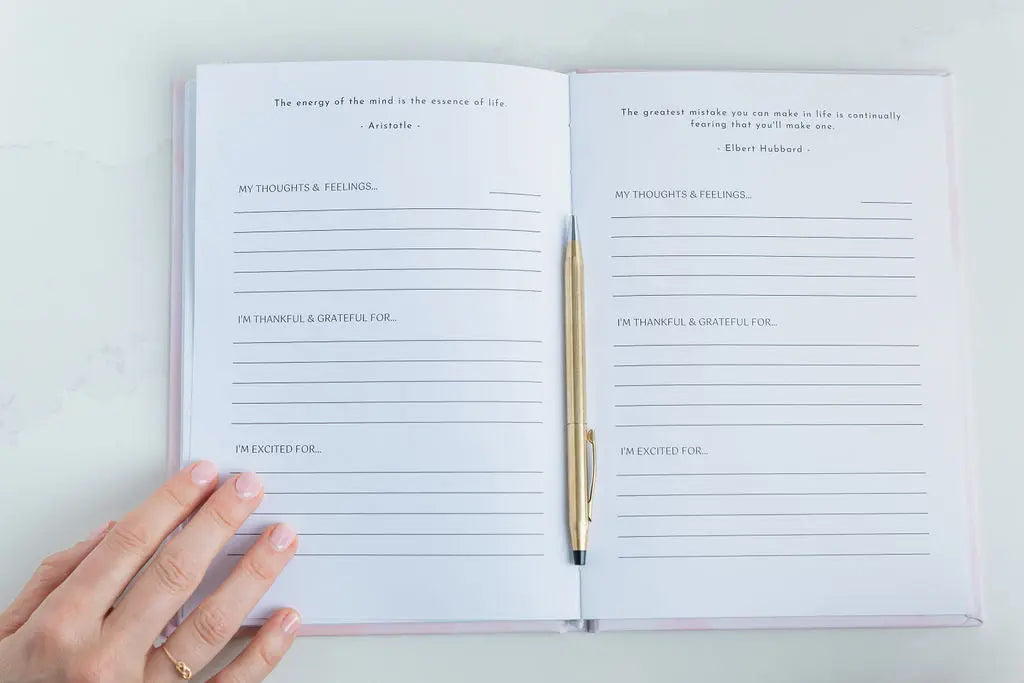 The energy of the mind is the essence of life.
- Aristotle -
MY THOUGHTS & FEELINGS...
I'M THANKFUL & GRATEFUL FOR...
I'M EXCITED FOR...
The greatest mistake you can make in life is continually
fearing that you'll make one.
- Elbert Hubbard -
MY THOUGHTS & FEELINGS...
I'M THANKFUL & GRATEFUL FOR...
I'M EXCITED FOR...